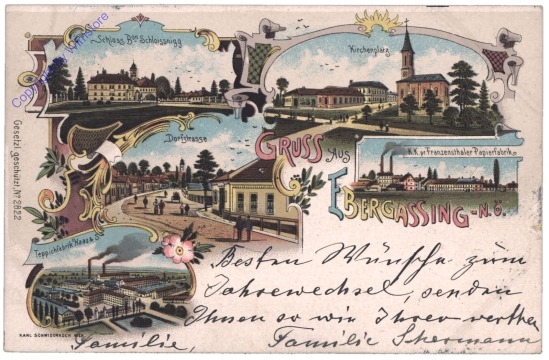 Schloss Bon Schloissnigg
Kirchenplatz
Dorfstrasse
GRUSS AUS
EBERGASSING - N.Ö.
K.K. pr. Franzensthaler Papierfabrik
Teppichfabrik Haas &
Gesetzl. geschützt. No 2822
KARL SCHWIDERNOCH WIEN
Besten Wünsche zum
Jahrewechsel, senden
Ihnen so wie Ihrer werthen
Familie, Familie